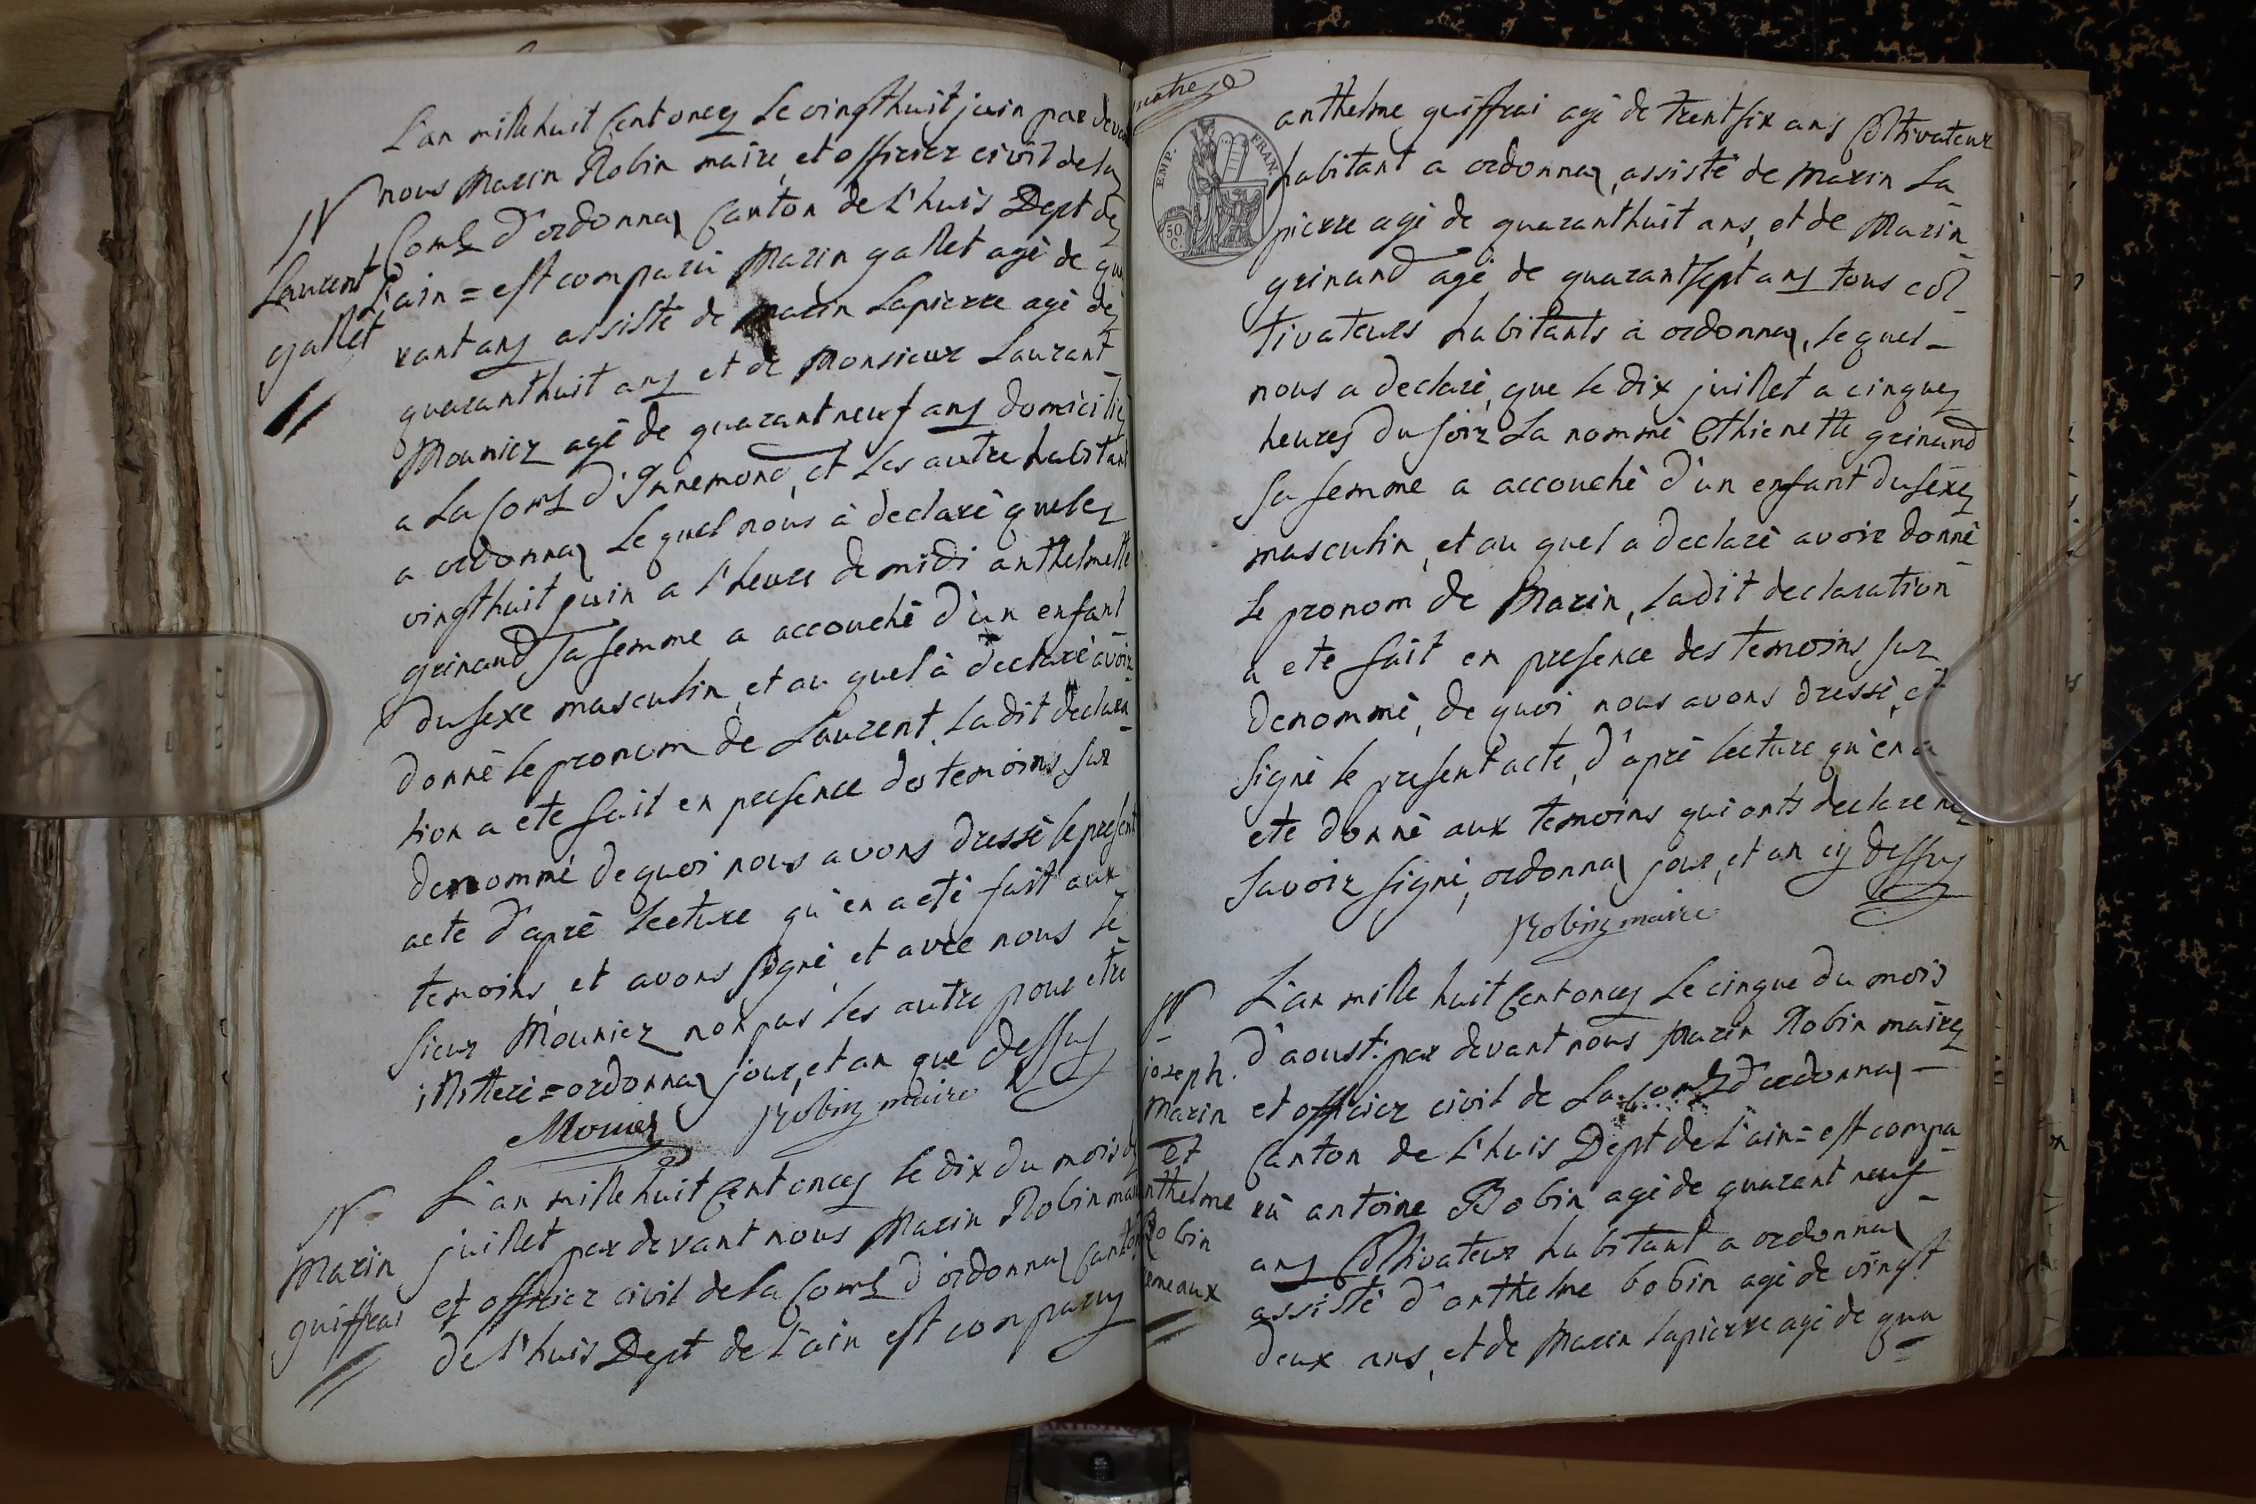 L'an mille huit cent onze le vingthuit juin par devan
nous Marin Robin maire, et officier civil de la
N
Com̃e d'ordonnaz canton de L'huis Dept de
Laurent
L'ain = est comparû Marin gallet agé de qua
gallet
rant ans assisté de Marin Lapierre agé de
quaranthuit ans et de Monsieur Laurant
Mounier agé de quarantneuf ans domicilié
a La Com̃e d'Innemond, et les autre habitant
a ordonnaz Lequel nous à declaré quele
vingthuit juin a l'heure de midi anthelmette
grinand sa femme a accouché d'ùn enfant
du sexe masculin, et au quel à declaré avoir
donné le pronom de Laurent, ladit declara
tion a eté fait en presence des temoins sur
denommé de quoi nous avons dressé le present
acte d'aprè lecture qu'en a eté fait aux
temoins, et avons signé, et avec nous le
sieur Mounier non pas les autre pour etre
illitteré = ordonnaz jour, et an que dessus
Mounier Robin maire
N
Marin
guiffrai
L'an mille huit cent onze le dix du mois de
juillet par devant nous Marin Robin mai
et officier civil de la Com̃e d'ordonnaz canton
de L'huis Dept de L'ain est comparu
quatre
EMP. FRAN.
50 C.
anthelme guiffrai agé de trentsix ans Coltivateur
habitant a ordonnaz, assisté de Marin La
pierre agé de quaranthuit ans, et de Marin
grinand agé de quarantsept ans tous col
tivateurs habitants a ordonnaz, lequel
nous a declaré, que le dix juillet a cinque
heures du soir La nommé Ethienette grinand
sa femme a accouché d'ùn enfant du sexe
masculin, et au quel a declaré avoir donné
le pronom de Marin, ladit declaration
a eté fait en presence des temoins sur
denommé, de quoi nous avons dressé, et
signé le present acte, d'aprè lecture qu'en a
eté donné aux temoins qui onts declaré ne
savoir signé, ordonnaz jour, et an cy dessus
Robin maire
N
joseph.
Marin
et
anthelme
Bobin
jumeaux
L'an mille huit cent onze le cinque du mois
d'aoust. par devant nous Marin Robin maire
et officier civil de La com̃e d'ordonnaz
Canton de L'huis Dept de L'ain = est compa
rû antoine Bobin agé de quarant neuf
ans Coltivateur habitant a ordonnaz
assisté d'anthelme bobin agé de vingt
deux ans, et de Marin lapierre agé de qua